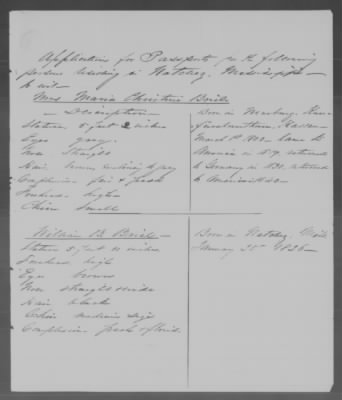 Application for Passports for the following
persons residing in Natchez, Mississippi
to wit—
Mrs Maria Christina
— Description —
Stature 5 feet 2 inches
Eyes gray
Nose straight
Hair brown, inclining to gray
Complexion fair & fresh
Forehead high
Chin small
Born in Marburg,
March 1st
America in
to Germany in returned
to America
William B.
Stature 5 feet inches
Forehead high
Eyes brown
Nose straight & wide
Hair black
Chin medium size
Complexion fresh & florid
Born in Natchez, Miss
January 25th 1836—